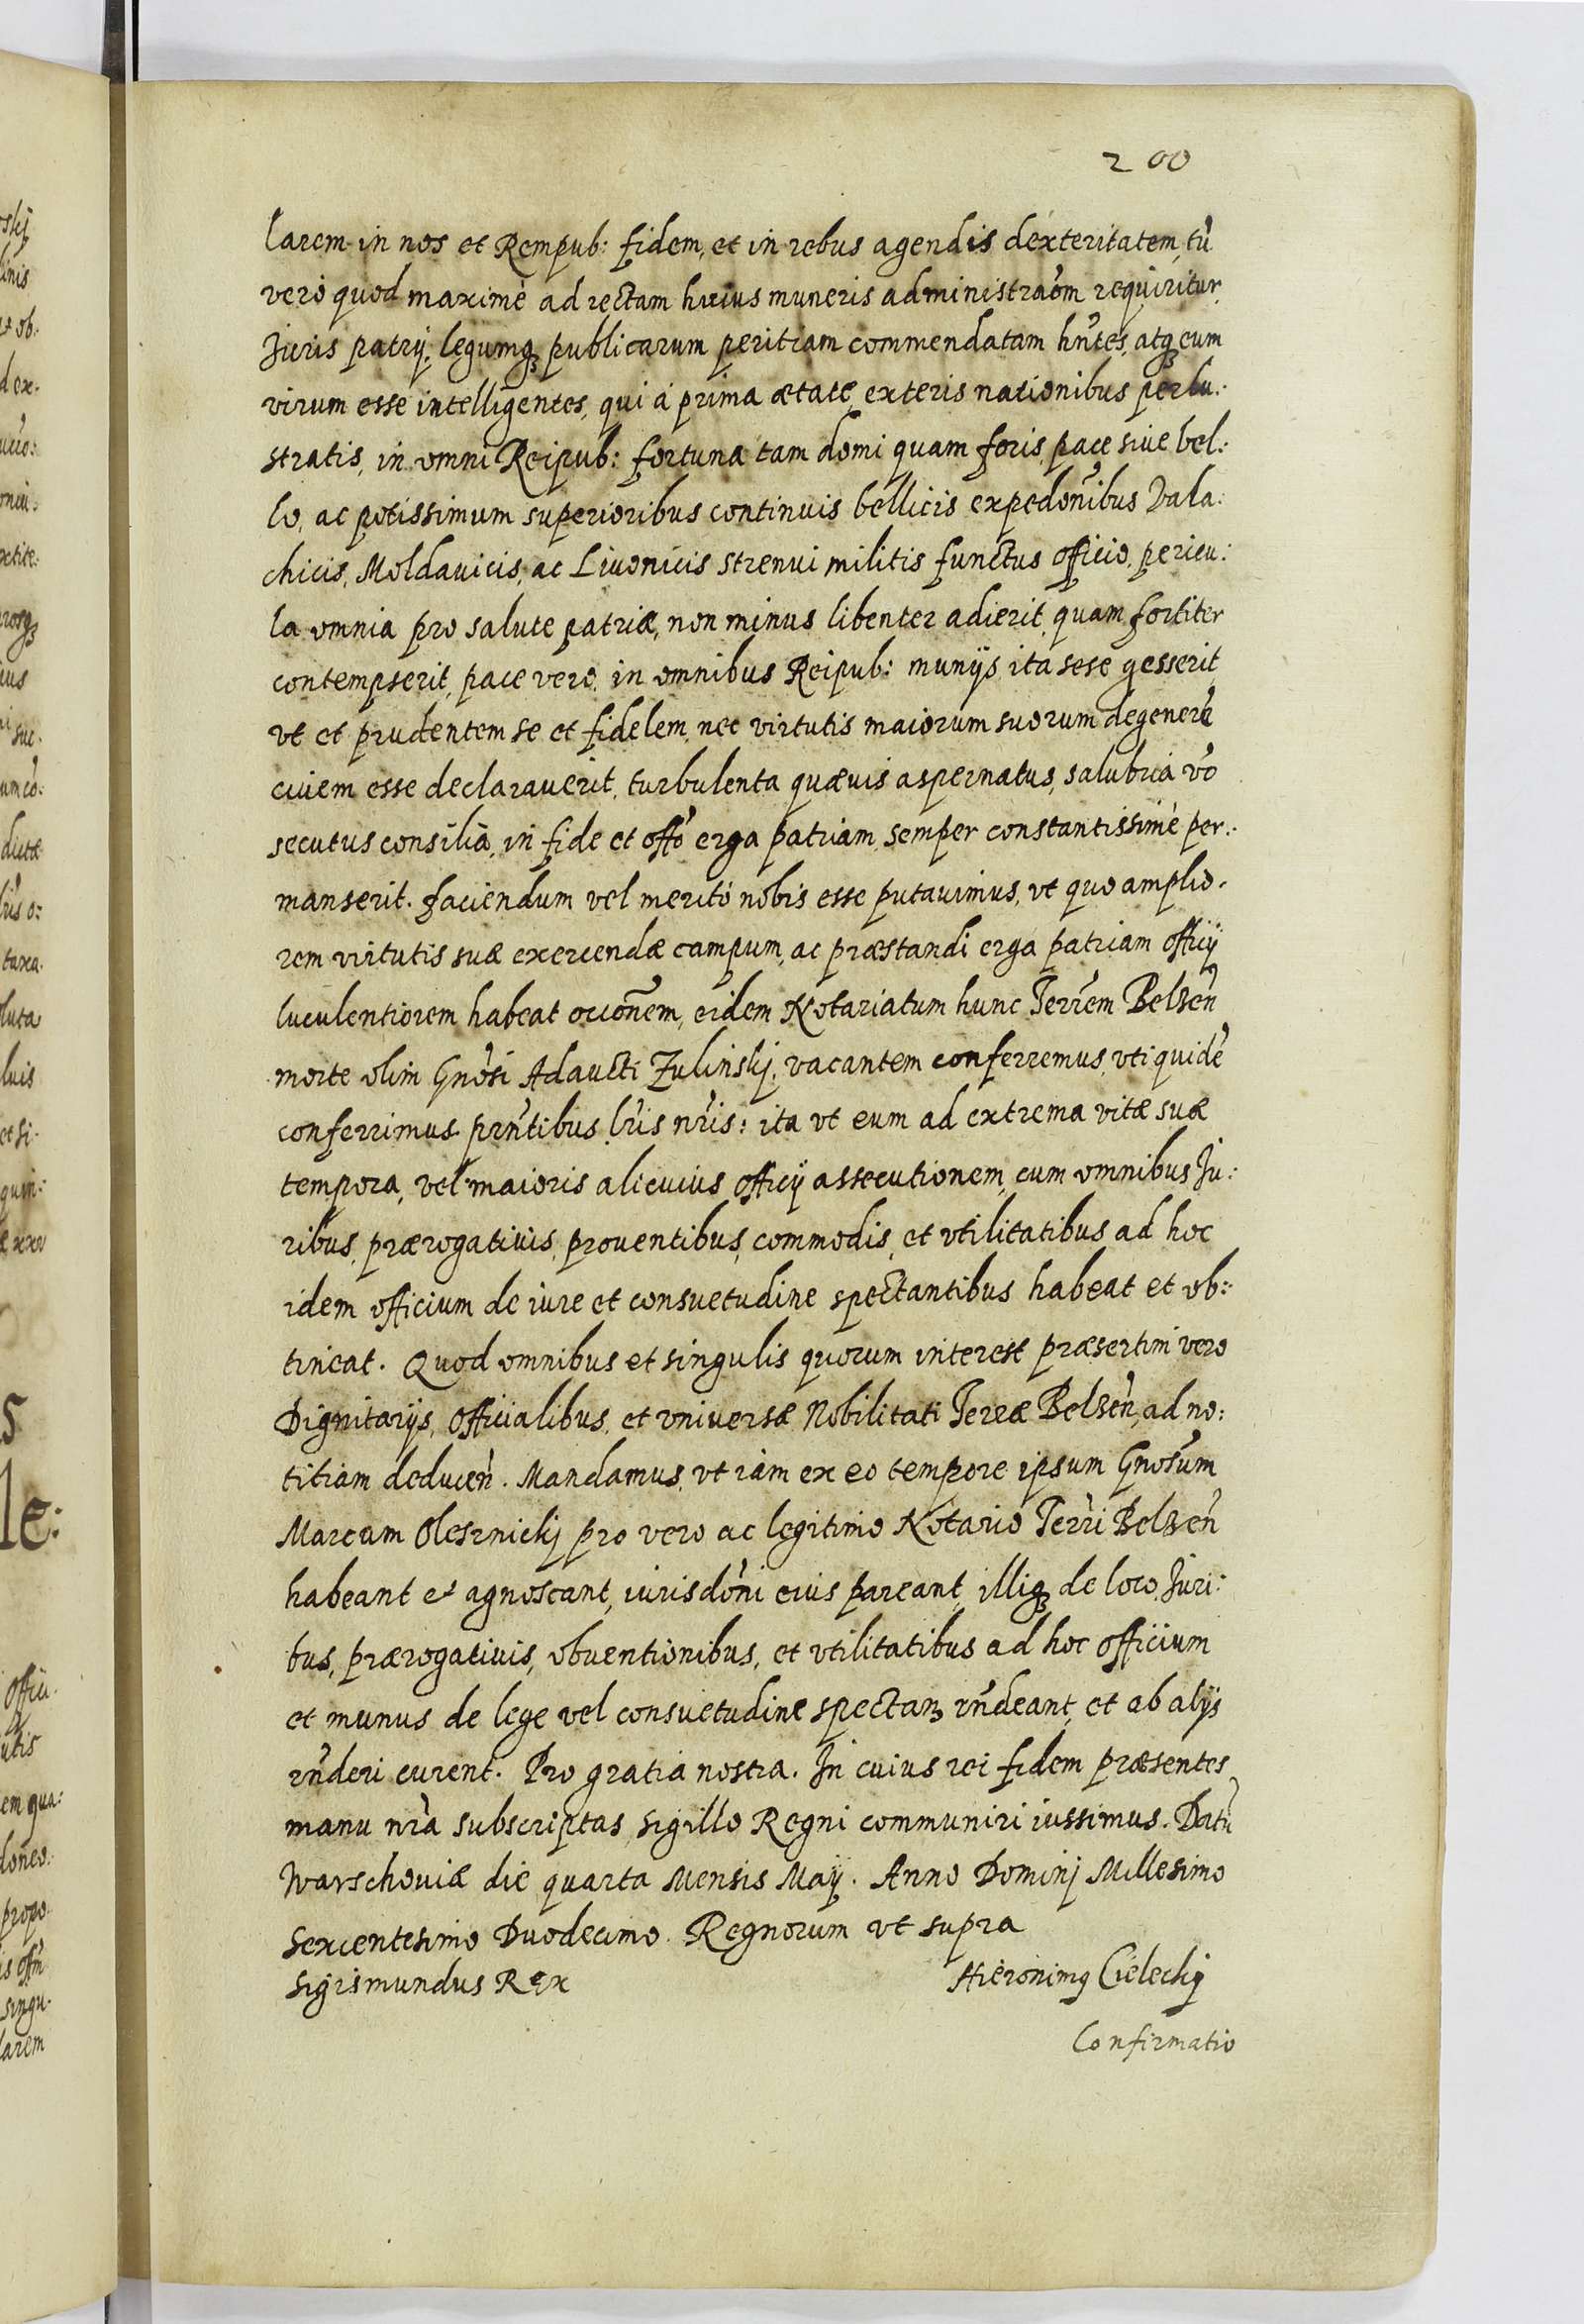 200
larem in nos et Rempub: fidem, et in rebus agendis dexteritatem, tũ
vero quod maximè ad rectam huius muneris administraõm requiritur,
Iuris patrij, legumq₃ publicarum peritiam commendatam hñtes, atq₃ eum
virum esse intelligentes, qui à prima ætate, exteris nationibus perlu:
stratis, in omni Reipub: fortuna tam domi quam foris, pace siue bel:
lo, ac potissimum superioribus continuis bellicis expedõnibus Vala:
chicis, Moldauicis, ac Liuonicis strenui militis functus officio, pericu:
la omnia pro salute patriæ, non minus libenter adierit, quam fortiter
contempserit, pace vero, in omnibus Reipub: munijs ita sese gesserit,
vt et prudentem se et fidelem, nec virtutis maiorum suorum degenerẽ
ciuem esse declarauerit, turbulenta quæuis aspernatus, salubria võ
secutus consilia, in fide et offõ erga patriam, semper constantissimè per:
manserit. Faciendum vel meritò nobis esse putauimus, vt quo amplio:
rem virtutis suæ exercendæ campum, ac præstandi erga patriam officij
luculentiorem habeat occõnem, eidem Notariatum hunc Terrẽm Belzeñ
morte olim Gnõsi Adaucti Zulinskj, vacantem conferremus, vti quidẽ
conferrimus prñtibus lr̃is nr̃is: ita vt eum ad extrema vitæ suæ
tempora, vel maioris alicuius officij assecutionem, cum omnibus Iu:
ribus, prærogatiuis, prouentibus, commodis, et vtilitatibus ad hoc
idem officium de iure et consuetudine spectantibus habeat et ob:
tineat. Quod omnibus et singulis quorum interest præsertim vero
Dignitarijs, Officialibus, et vniversæ Nobilitati Terræ Belzeñ, ad no:
titiam deduceñ. Mandamus, vt iam ex eo tempore ipsum Gnõsum
Marcum Olesznickj pro vero ac legitimo Notario Terr̃i Belzeñ
habeant et agnoscant, iurisdõni eius pareant, illiq₃ de loco, Iuri:
bus, prærogatiuis, obuentionibus, et vtilitatibus ad hoc officium
et munus de lege vel consuetudine spectan₃ rñdeant, et ab alijs
rñderi curent. Pro gratia nostra. In cuius rei fidem præsentes
manu nr̃a subscriptas, sigillo Regni communiri iussimus. Datũ
Warschouiæ die quarta Mensis Maij. Anno Dominj Millesimo
Sexcentesimo Duodecimo. Regnorum vt supra
Sigismundus Rex Hieronimꝯ Cieleckj
Confirmatio